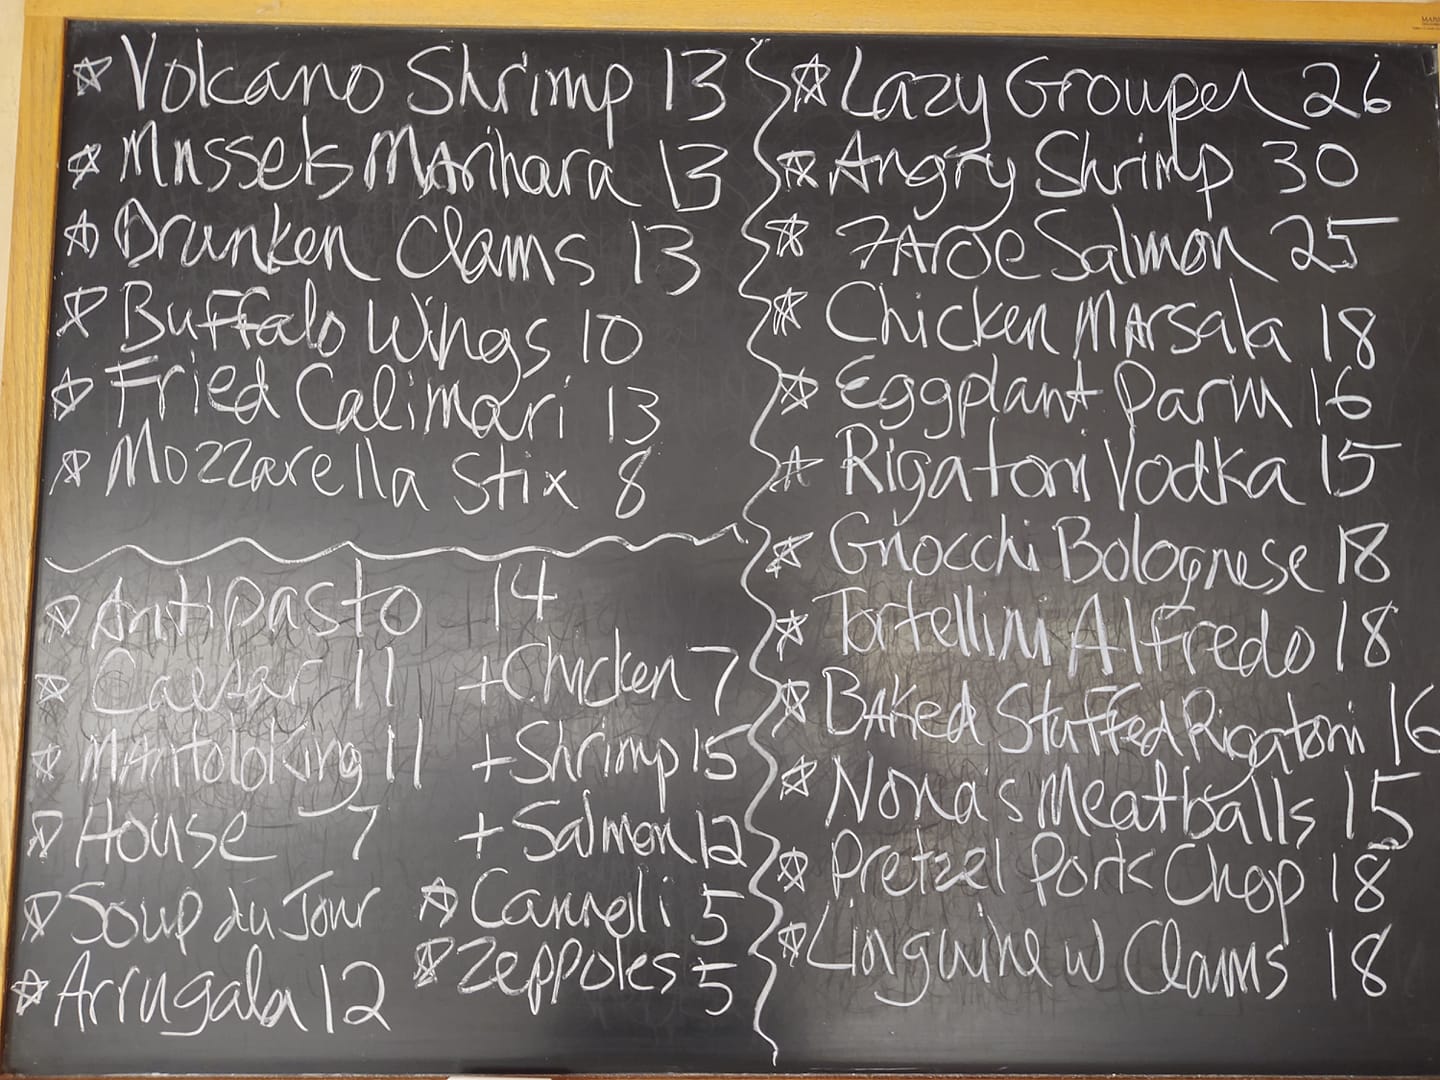 Volcano Shrimp 13
Mussels Marinara 13
Drunken Clams 13
Buffalo Wings 10
Fried Calimari 13
Mozzarella Stix 8
Antipasto 14
Caesar 11 +Chicken 7
Mantoloking 11 +Shrimp 15
House 7 +Salmon 12
Soup du Jour
Arrugala 12
Cannoli 5
Zeppoles 5
Lazy Grouper 26
Angry Shrimp 30
FAroe Salmon 25
Chicken Marsala 18
Eggplant Parm 16
Rigatoni Vodka 15
Gnocchi Bolognese 18
Tortellini Alfredo 18
Baked Stuffed Rigatoni 16
Nona's Meatballs 15
Pretzel Pork Chop 18
Linguine w Clams 18